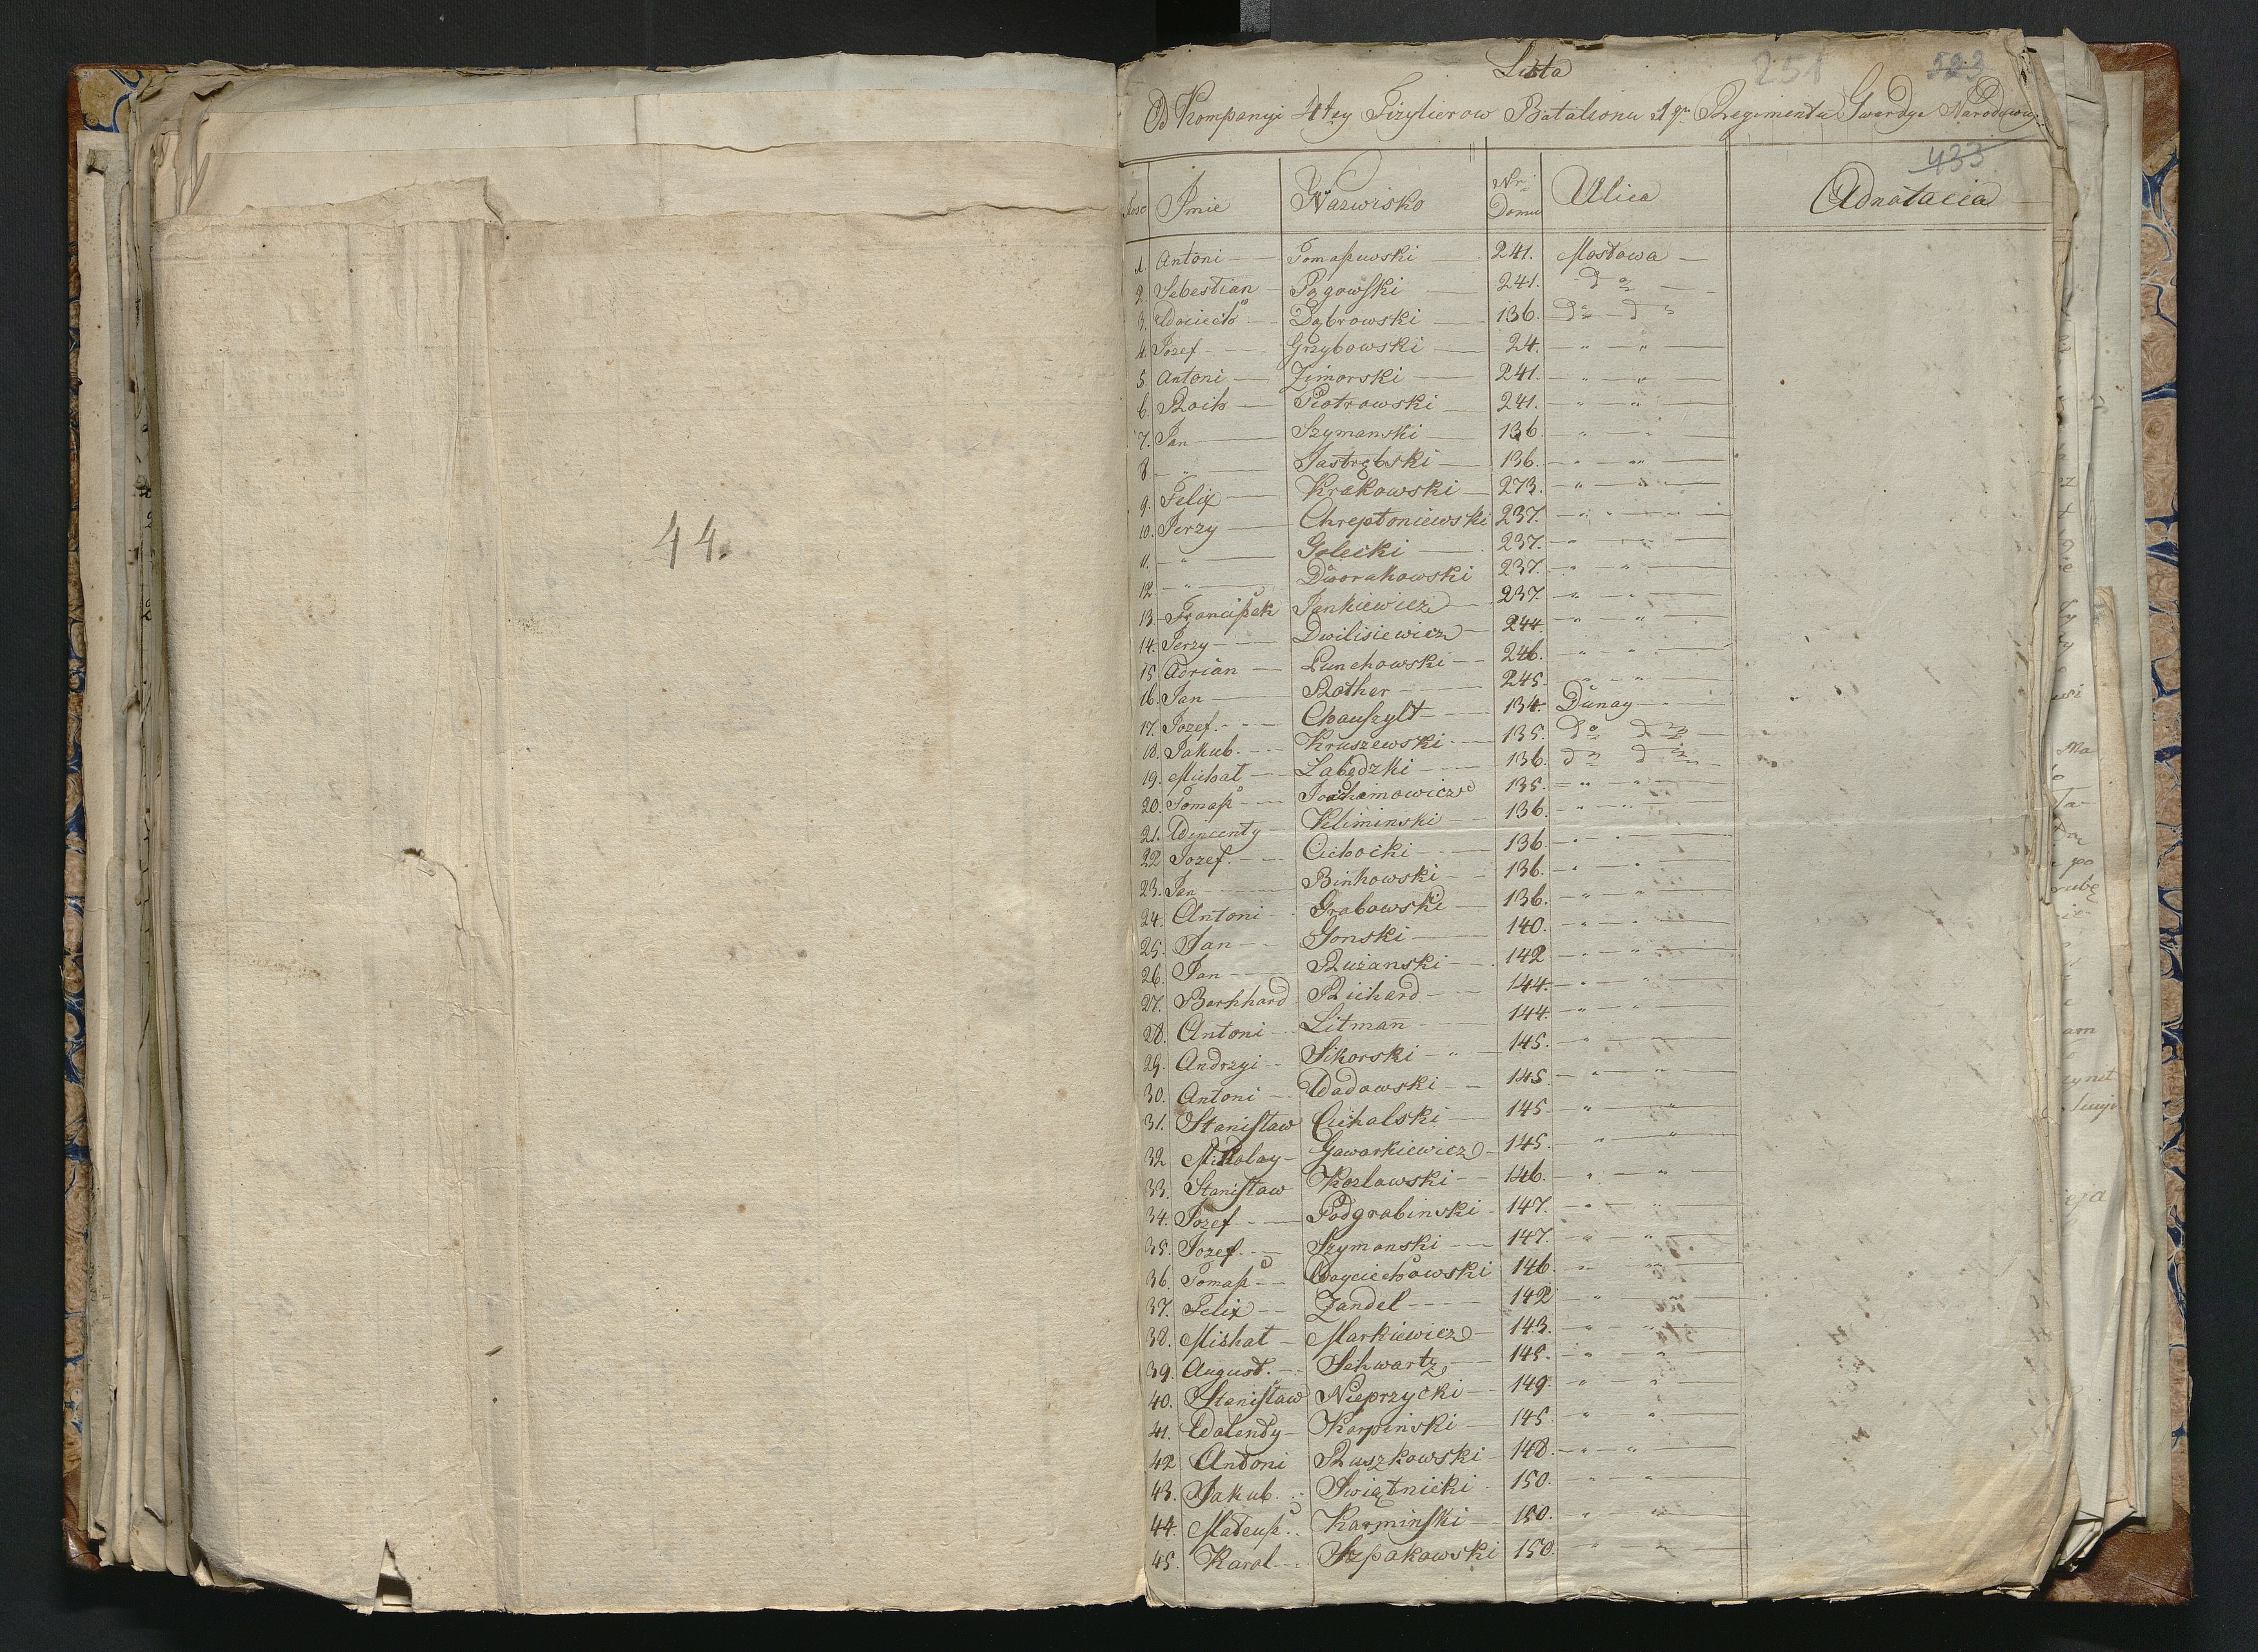 44.
Lista
251
523
Od Kompanyi 4tey Fizylierow Batalionu 1go Regimentu Gwardyi Narodowey
433
Imie Nazwisko Nr Domu Ulica Adnotacia
1. Antoni — Tomaßewski — 241. Mostowa —
2. Sebestian — Pągowski — 241. do —
3. Woiciech — Dąbrowski — 136. do — do
4. Jozef — Grzybowski — 24. — " — " —
5. Antoni — Zimorski — 241. — " — " —
6. Roch — Piotrowski — 241. — " — " —
7. Jan — Szymanski — 136. — " — " —
8. — " — Jastrębski — 136. — " — " —
9. Felix — Krakowski — 273. — " — " —
10. Jerzy — Chreptoniewski 237. — " — " —
11. — " — Golecki — 237. — " — " —
12. — " — Dworakowski 237. — " — " —
13. Francißek Jankiewicz — 237. — " — " —
14. Jerzy — Dwilisiewicz — 244. — " — " —
15. Adrian — Punchowski — 246. — " — " —
16. Jan — Rother — 245. — " — " —
17. Jozef — Chauszylt — 134. Dunay —
18. Jakub — Kruszewski — 135. do do —
19. Michał — Łabędzki — 136. do do —
20. Tomaß — Joachimowicz 135. — " — " —
21. Wincenty — Kliminski — 136. — " — " —
22. Jozef — Cichocki — 136. — " — " —
23. Jan — Binkowski — 136. — " — " —
24. Antoni — Grabowski — 136. — " — " —
25. Jan — Gonski — 140. — " — " —
26. Jan — Rużanski — 142 — " — " —
27. Bernhard Richard — 144. — " — " —
28. Antoni — Litman̄ — 144. — " — " —
29. Andrzyi — Sikorski — " — 145. — " — " —
30. Antoni — Wadowski — 145. — " — " —
31. Stanisław Cichalski — 145. — " — " —
32. Mikołay — Gawarkiewicz — 145. — " — " —
33. Stanisław Kozlowski — 146. — " — " —
34. Jozef — Podgrabinski — 147. — " — " —
35. Jozef — Szymanski — 147. — " — " —
36. Tomaß — Woyciechowski 146. — " — " —
37. Felix — Zandel — 142 — " — " —
38. Michał — Markiewicz — 143. — " — " —
39. August. — Schwartz — 145. — " — " —
40. Stanisław Nieprzycki — 149. — " — " —
41. Walenty — Karpinski — 145. — " — " —
42 Antoni Ruszkowski — 148. — " — " —
43. Jakub. Swiątnicki. 150. — " — " —
44. Mateuß. Karminski — 150. — " — " —
45. Karol — Szpakowski 150. — " — " —